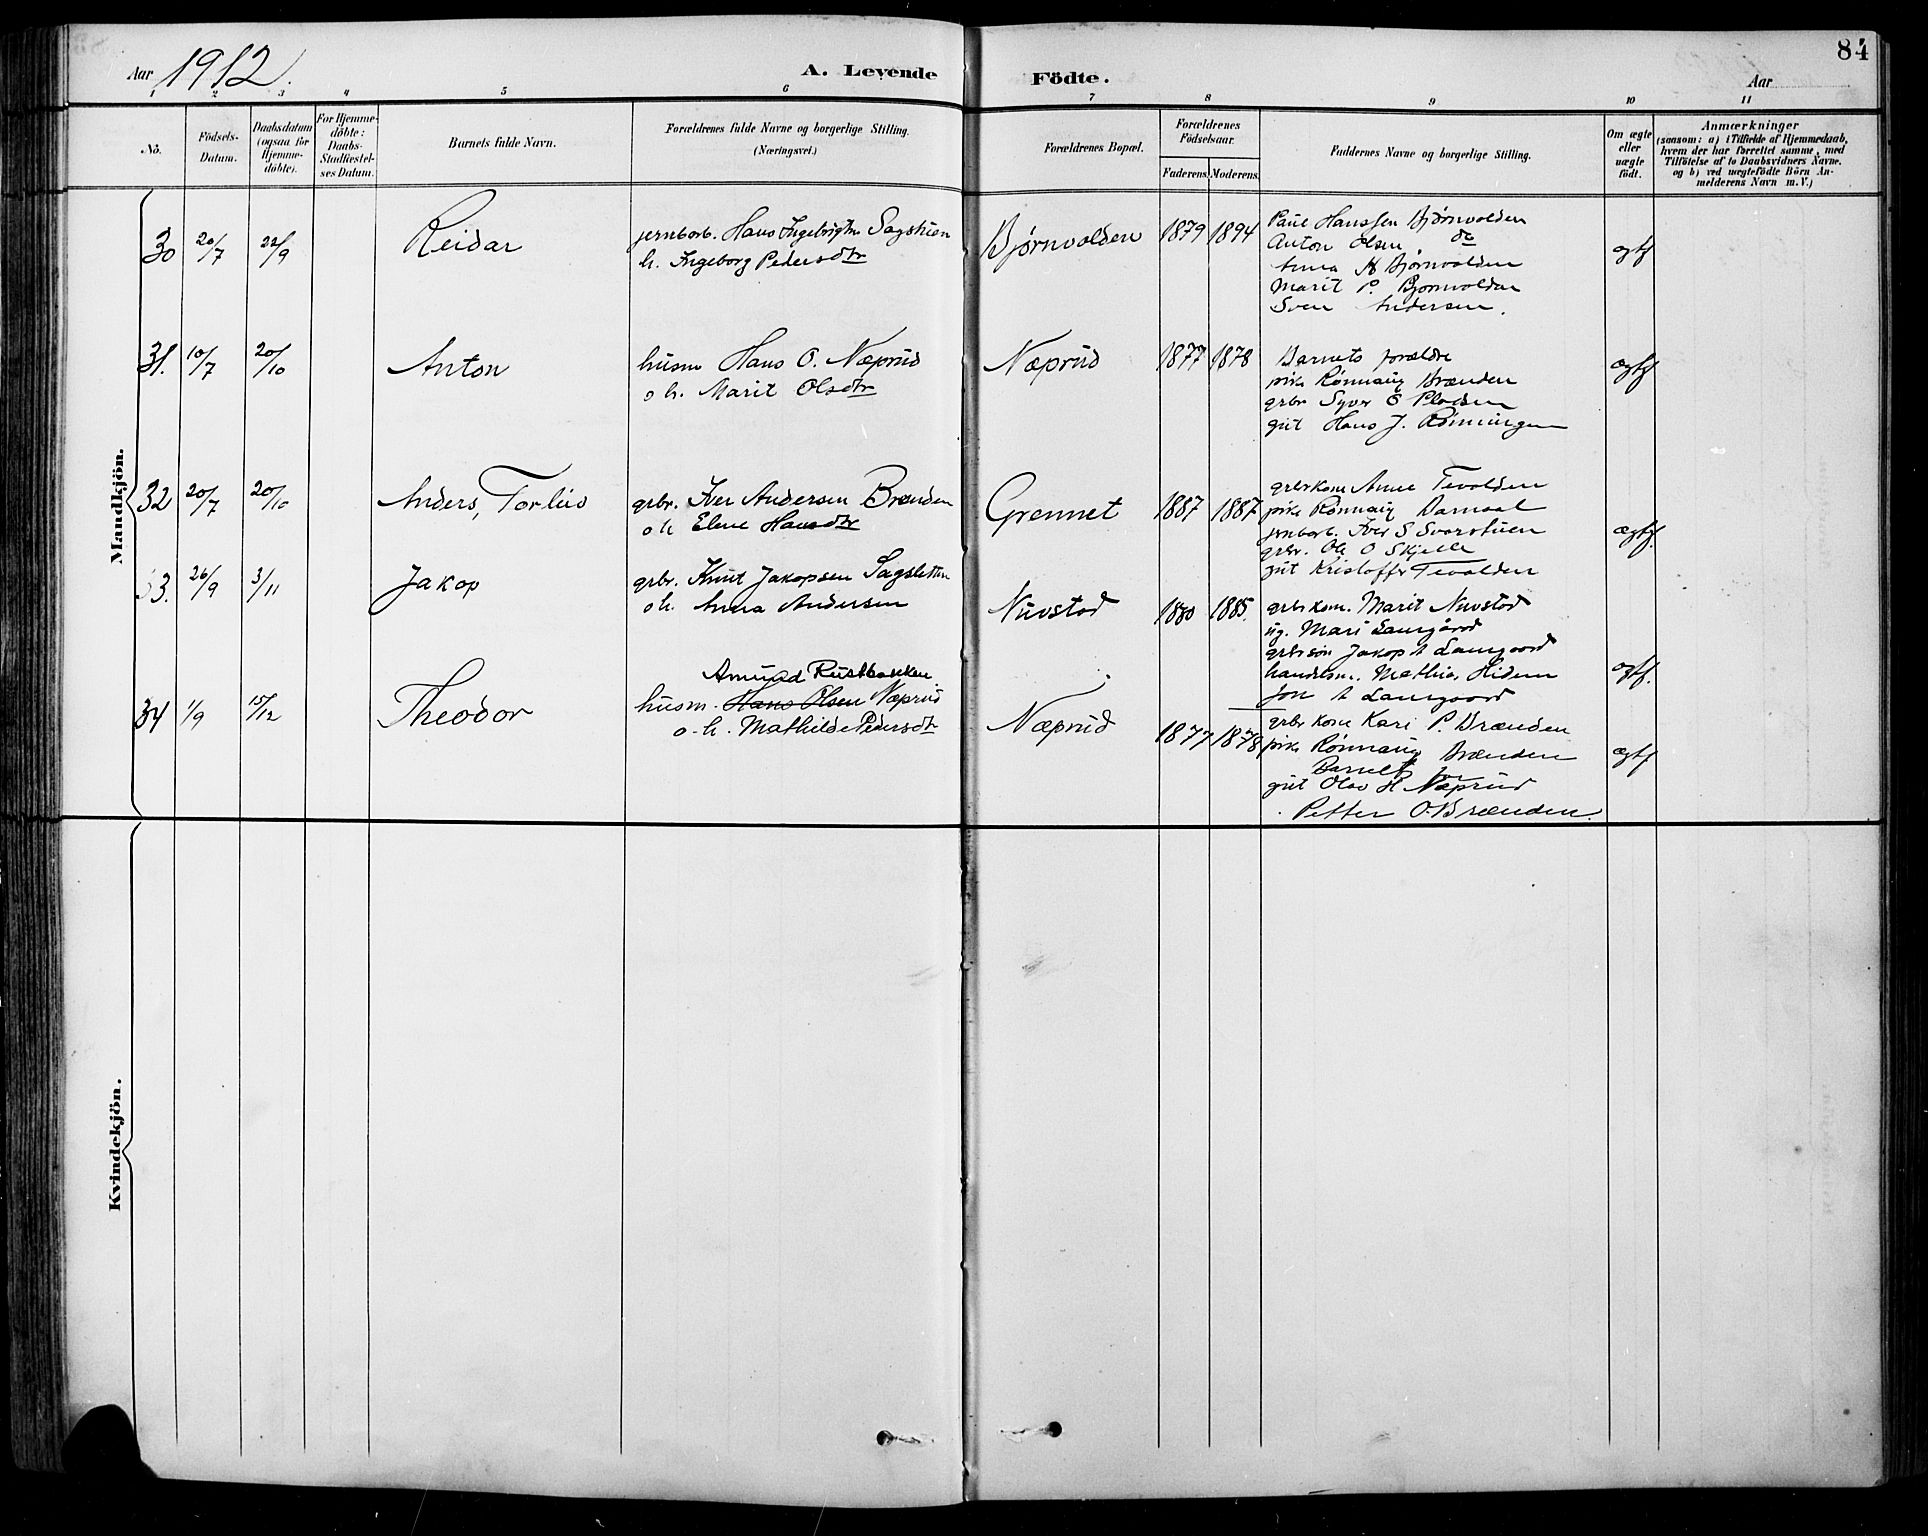 84
Aar 1912.
A. Levende Födte.
Aar
1 2 3 4 5 6 7 8 9 10 11
No.
Födsels-Datum.
Daabsdatum (ogsaa for Hjemme-döbte).
For Hjemme-döbte: Daabs-Stadfæstel-ses Datum.
Barnets fulde Navn.
Forældrenes fulde Navne og borgerlige Stilling.
(Næringsvei.)
Forældrenes Bopæl.
Forældrenes Födselsaar.
Faderens. Moderens.
Faddernes Navne og borgerlige Stilling.
Om ægte eller uægte födt.
Anmærkninger
(saasom: a) i Tilfælde af Hjemmedaab,
hvem der har forrettet samme, med
Tilföielse af to Daabsvidners Navne.
og b) ved uægtefödte Börn An-
melderens Navn m. V.)
Mandkjön.
30 20/7 22/9 Reidar
jernbarb. Hans Ingebrigtsn Sagstuen
h. Ingeborg Pedersdtr
Bjørnvolden 1879 1894
Paul Hanssen Bjørnvolden
Anton Olsen do
Anna H Bjørnvolden
Marit P. Bjørnvolden
Sven Andersen.
ægtf
31. 10/7 20/10 Anton
husm Hans O. Næprud
o h. Marit Olsdtr
Næprud 1877 1878
Barnets forældre
pike Rønnaug Brænden
grbr Syver O Pladsen
gut Hans J. Rønningen
ægtf
32 20/7 20/10 Anders, Torleis
grbr. Iver Andersen Brænden
o h Elene Hansdtr
Grennet 1887 1887
grbrkone Anne Tevolden
pike Rønnaug
jernbarb. Iver S Svarstuen
grbr. Ole O Skjelle
gut Kristoffer Tevolden
ægtf.
33. 26/9 3/11 Jakop
grbr. Knut Jakopsen Sagsletten
o h. Anna Andersen
Nuvstad 1880 1885.
grbrkone. Marit Nuvstad
ug. Mari Laurgård
grbrsøn Jakop A Laurgaard
handelsm. Mathias Hidem
Jon A Laurgaard
ægtf.
34 1/9 15/12 Theodor
Amund Rustbakken
husm. Hans Olsen Næprud
o. h. Mathilde Pedersdtr
Næprud 1877 1878
grbr kone Kari P. Brænden
pike Rønnaug Brænden
Barnets far
gut Olav H Næprud
Petter O. Brænden.
ægtf
Kvindekjön.